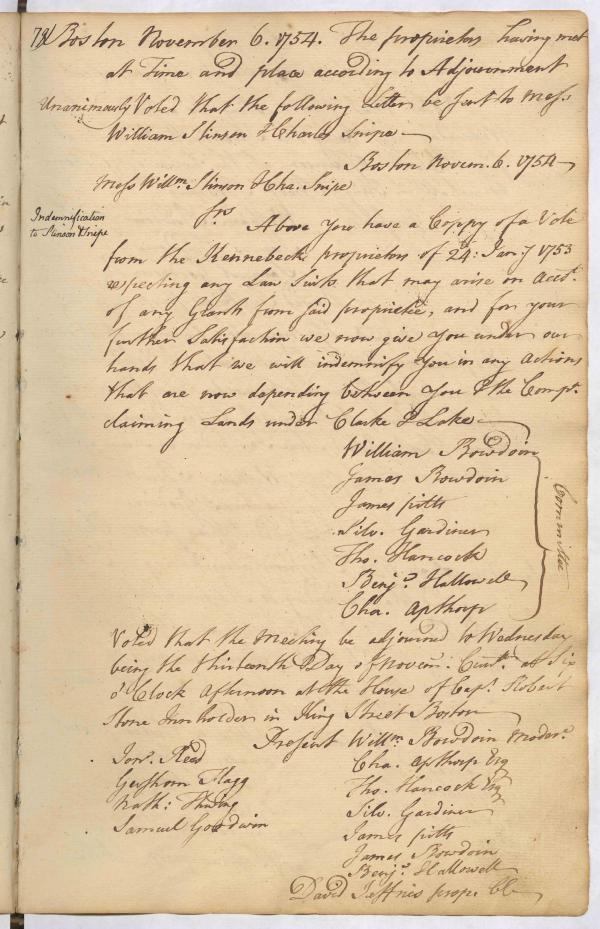 78/ Boston November 6. 1754. The proprietors having met
at Time and place according to Adjournment
Unanimously Voted that the following Letter be sent to Mess
William Stinson & Charles Snipe
Boston Novem. 6. 1754
Mess Willm. Stinson & Cha. Snipe
Indemnification
to Stinson & Snipe
Srs
Above you have a Coppy of a Vote
from the Kennebeck proprietors of 24: Jany 1753
respecting any Law Suits that may arise on Acct.
of any Grants from said proprietee, and for your
further Satisfaction we now give you under our
hands that we will indemnify you in any Actions
that are now depending between you & the Compy.
claiming Lands under Clarke & Lake
William Bowdoin
James Bowdoin
James pitts
Silv. Gardiner
Tho. Hancock
Benja. Hallowell
Cha. Apthorp
Committee
Voted that the Meeting be adjourned to Wednesday
being the thirteenth Day of Novem. Currt. at Six
o'Clock Afternoon at the House of Capt. Robert
Stone Innholder in King Street Boston
Present Willm. Bowdoin Moder.
Jona. Reed
Gershom Flagg
Nath: Thwing
Samuel Goodwin
Cha. Apthorp Esq
Tho. Hancock Esq
Silv. Gardiner
James pitts
James Bowdoin
Benja. Hallowell
David Jeffries prop. Cle